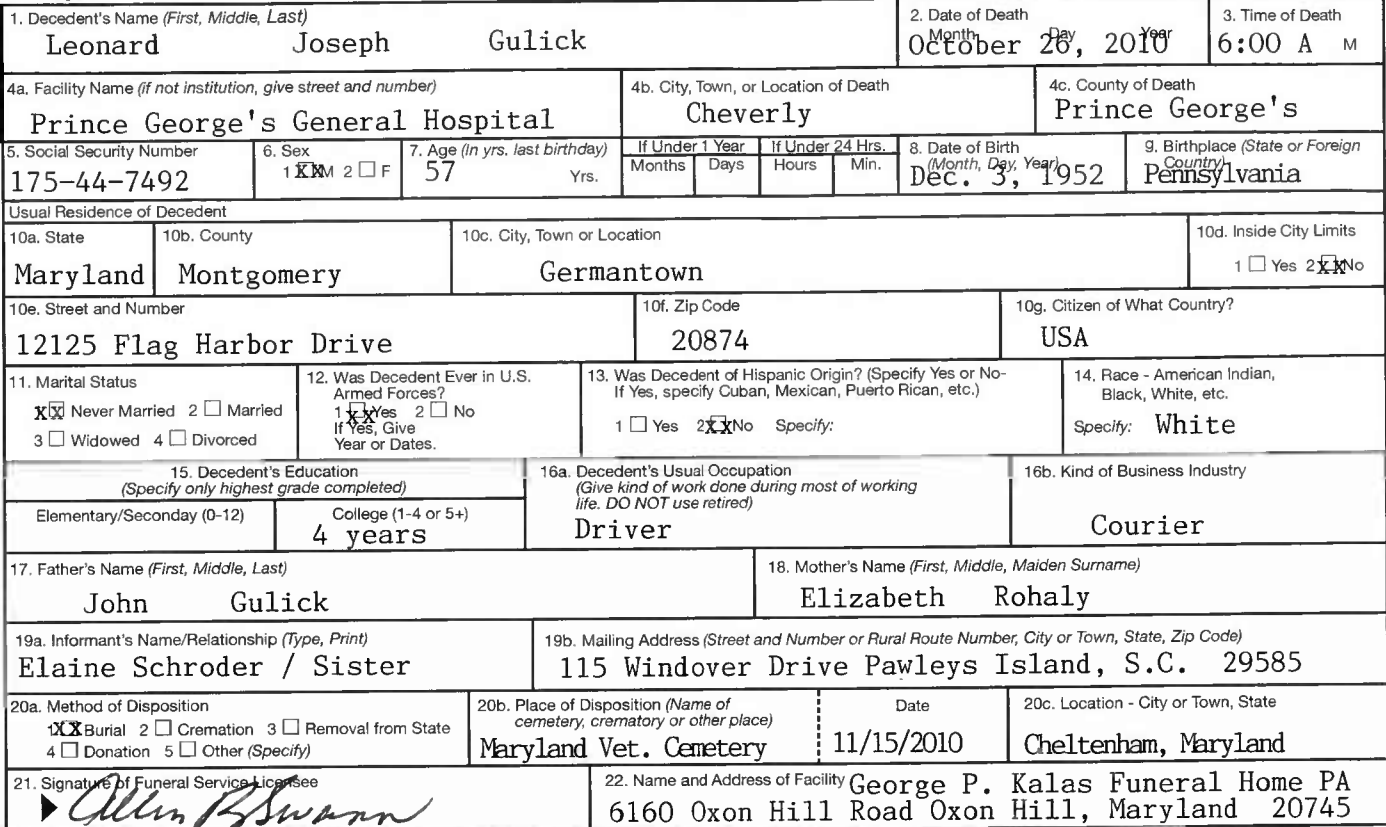 1. Decedent's Name (First, Middle, Last)
Leonard Joseph Gulick
2. Date of Death
Month Day Year
October 26, 2010
3. Time of Death
6:00 A M
4a. Facility Name (if not institution, give street and number)
Prince George's General Hospital
4b. City, Town, or Location of Death
Cheverly
4c. County of Death
Prince George's
5. Social Security Number
175-44-7492
6. Sex
1 XX M 2 ☐ F
7. Age (In yrs. last birthday)
57 Yrs.
If Under 1 Year
Months Days
If Under 24 Hrs.
Hours Min.
8. Date of Birth
(Month, Day, Year)
Dec. 3, 1952
9. Birthplace (State or Foreign
Country)
Pennsylvania
Usual Residence of Decedent
10a. State
Maryland
10b. County
Montgomery
10c. City, Town or Location
Germantown
10d. Inside City Limits
1 ☐ Yes 2 XX No
10e. Street and Number
12125 Flag Harbor Drive
10f. Zip Code
20874
10g. Citizen of What Country?
USA
11. Marital Status
XX Never Married 2 ☐ Married
3 ☐ Widowed 4 ☐ Divorced
12. Was Decedent Ever in U.S.
Armed Forces?
1 XX Yes 2 ☐ No
If Yes, Give
Year or Dates.
13. Was Decedent of Hispanic Origin? (Specify Yes or No-
If Yes, specify Cuban, Mexican, Puerto Rican, etc.)
1 ☐ Yes 2 XX No Specify:
14. Race - American Indian,
Black, White, etc.
Specify: White
15. Decedent's Education
(Specify only highest grade completed)
Elementary/Seconday (0-12)
College (1-4 or 5+)
4 years
16a. Decedent's Usual Occupation
(Give kind of work done during most of working
life. DO NOT use retired)
Driver
16b. Kind of Business Industry
Courier
17. Father's Name (First, Middle, Last)
John Gulick
18. Mother's Name (First, Middle, Maiden Surname)
Elizabeth Rohaly
19a. Informant's Name/Relationship (Type, Print)
Elaine Schroder / Sister
19b. Mailing Address (Street and Number or Rural Route Number, City or Town, State, Zip Code)
115 Windover Drive Pawleys Island, S.C. 29585
20a. Method of Disposition
1 XX Burial 2 ☐ Cremation 3 ☐ Removal from State
4 ☐ Donation 5 ☐ Other (Specify)
20b. Place of Disposition (Name of
cemetery, crematory or other place)
Maryland Vet. Cemetery
Date
11/15/2010
20c. Location - City or Town, State
Cheltenham, Maryland
21. Signature of Funeral Service Licensee
22. Name and Address of Facility George P. Kalas Funeral Home PA
6160 Oxon Hill Road Oxon Hill, Maryland 20745